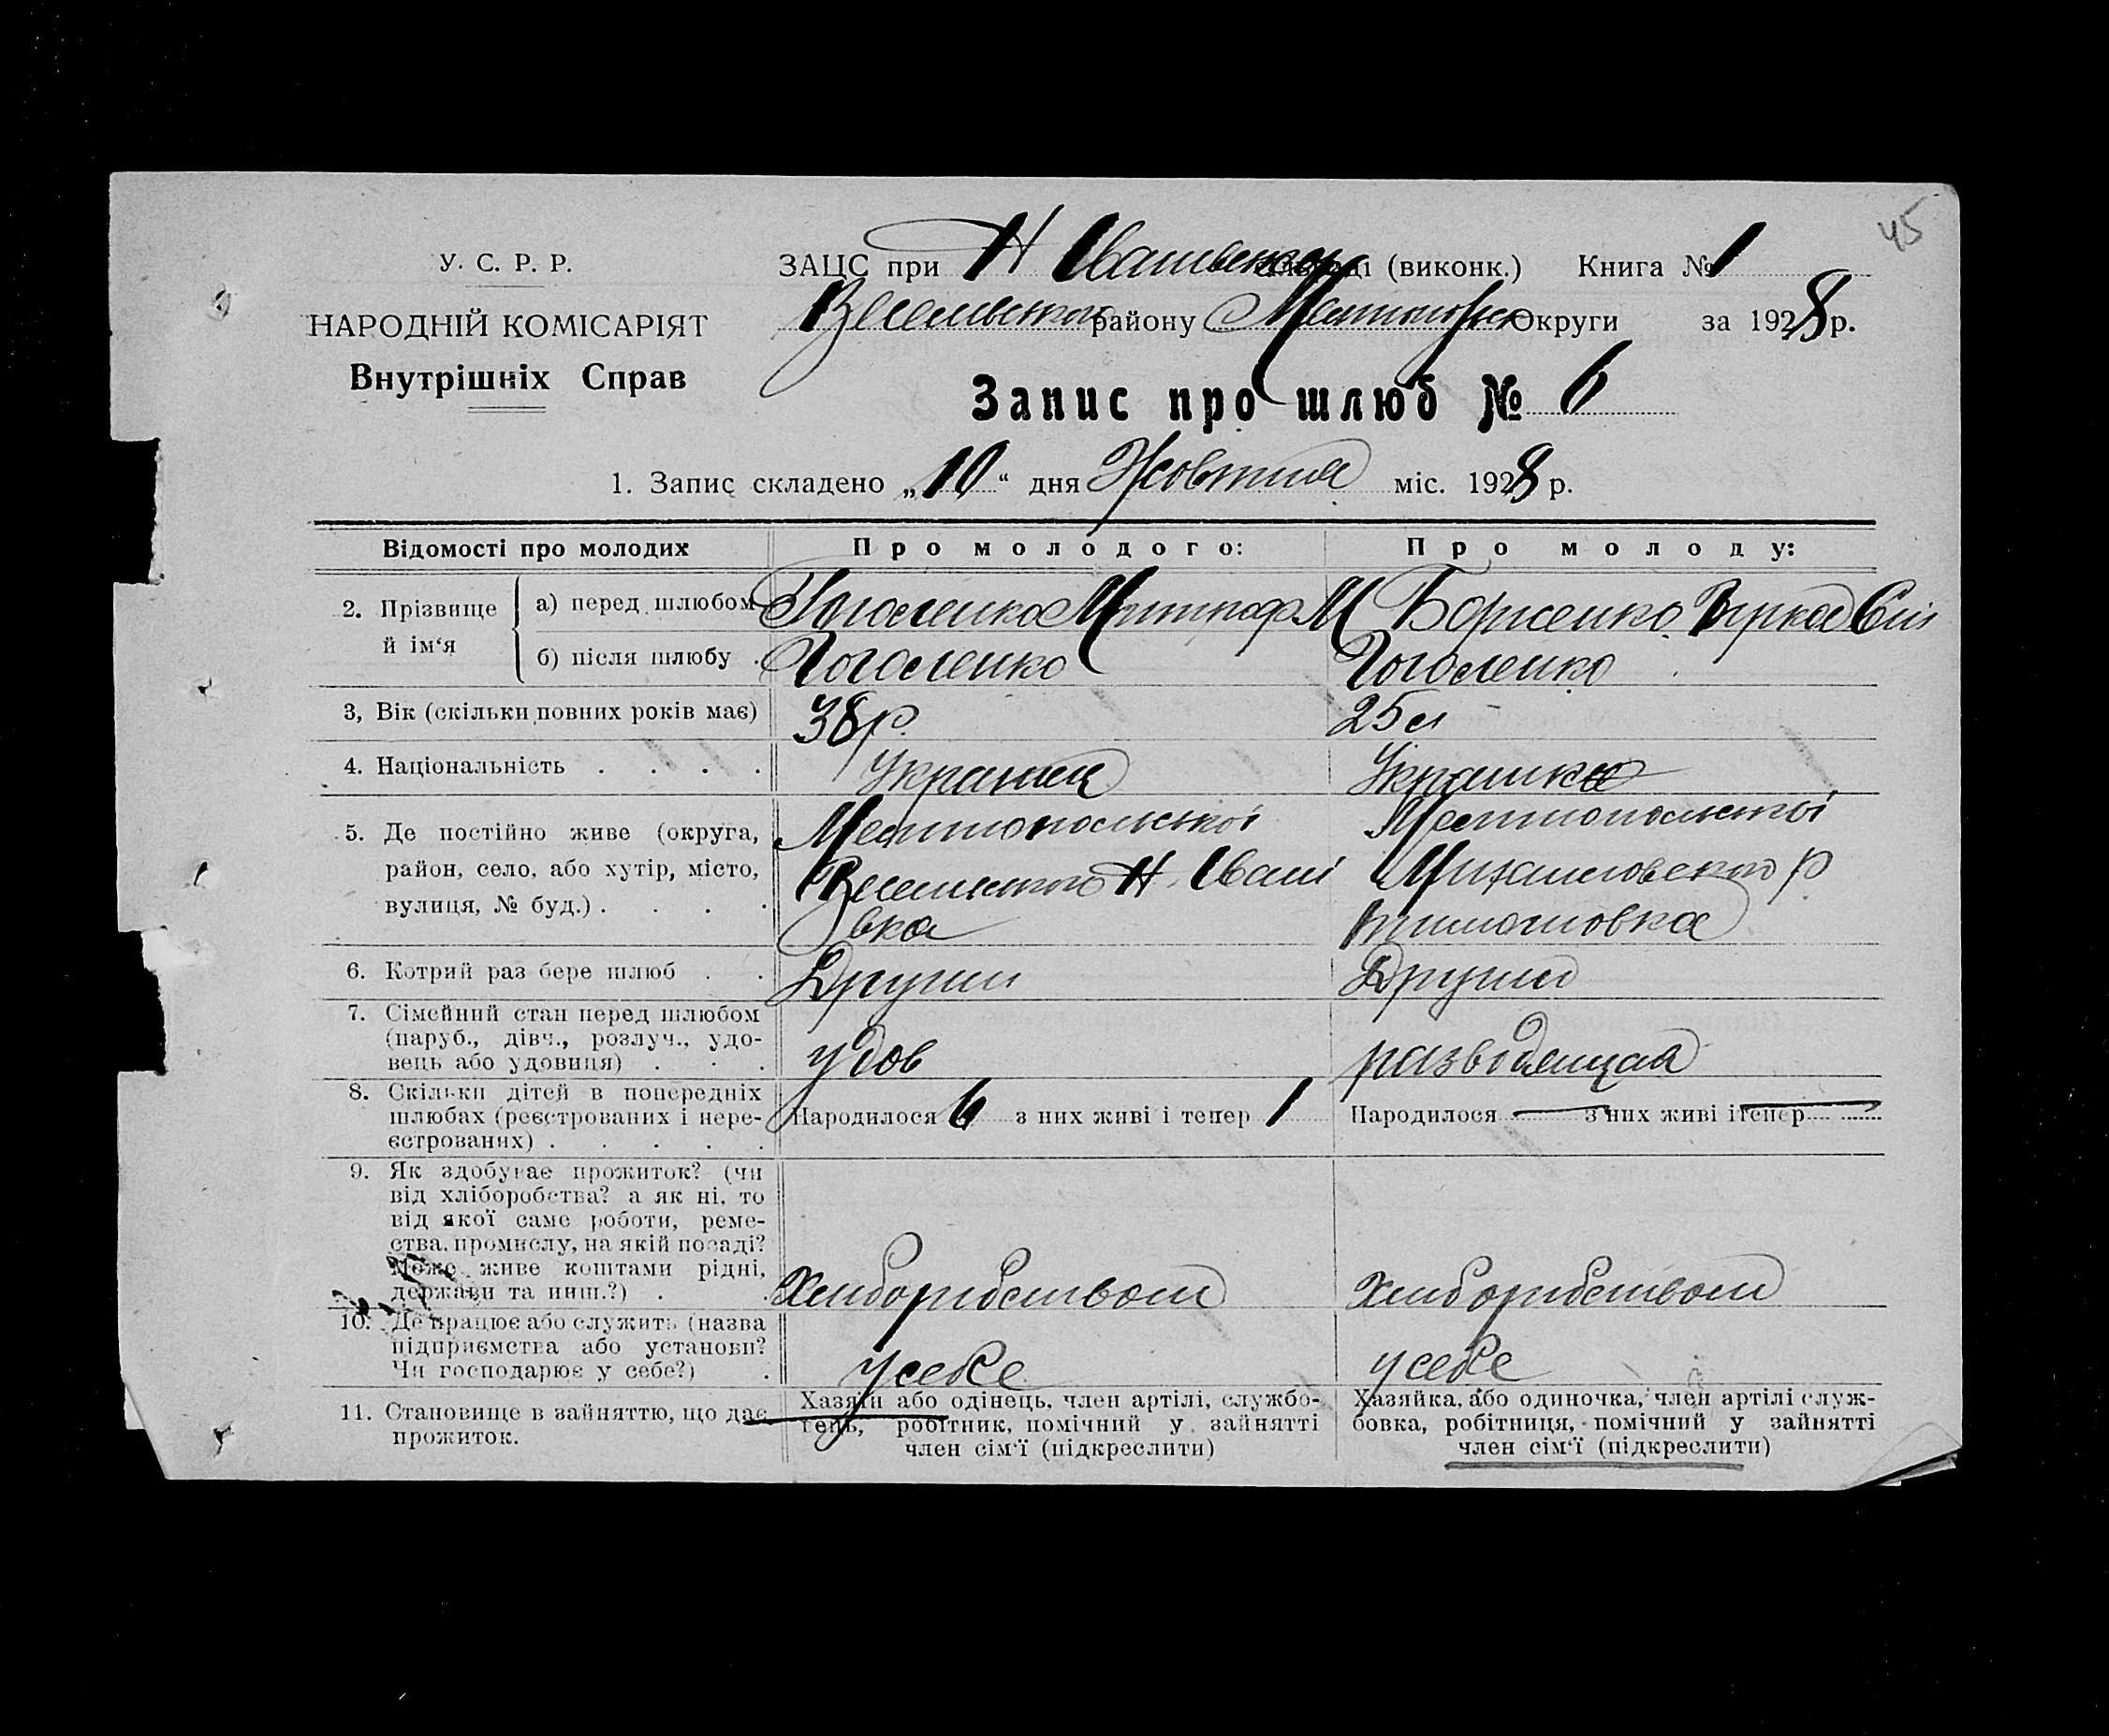 45
У. С. Р. Р.
НАРОДНІЙ КОМІСАРІЯТ
Внутрішніх Справ
ЗАЦС при Н (виконк.) Книга № 1
району Округи за 1928 р.
Запис про шлюб № 6
1. Запис складено „10“ дня Жовтня міс. 1928 р.
Відомості про молодих Про молодого: Про молоду:
2. Прізвище й ім‘я а) перед шлюбом Гоголенко Митроф М Борисенко
б) після шлюбу Гоголенко Гоголенко
3, Вік (скільки повних років має) 38 р. 25 л
4. Національність Українец Українка
5. Де постійно живе (округа, Мелитопольської Мелитопольської
район, село, або хутір, місто, Н. Івані Михаиловского р
вулиця, № буд.) вка Тимошовка
6. Котрий раз бере шлюб Другий Другий
7. Сімейний стан перед шлюбом
(паруб., дівч., розлуч., удо-
вець або удовиця) удов разводящая
8. Скільки дітей в попередніх
шлюбах (реєстрованих і нере- Народилося 6 з них живі і тепер 1 Народилося — з них живі і тепер —
єстрованих)
9. Як здобуває прожиток? (чи
від хліборобства? а як ні, то
від якої саме роботи, реме-
ства, промислу, на якій посаді?
Може живе коштами рідні,
держави та инш.?) Хліборобством Хліборобством
10. Де працює або служить (назва
підприємства або установи?
Чи господарює у себе?) у себе у себе
11. Становище в зайняттю, що дає Хазяїн або одінець, член артілі, службо- Хазяйка, або одиночка, член артілі служ-
прожиток. тець, робітник, помічний у зайнятті бовка, робітниця, помічний у зайнятті
член сім‘ї (підкреслити) член сім‘ї (підкреслити)